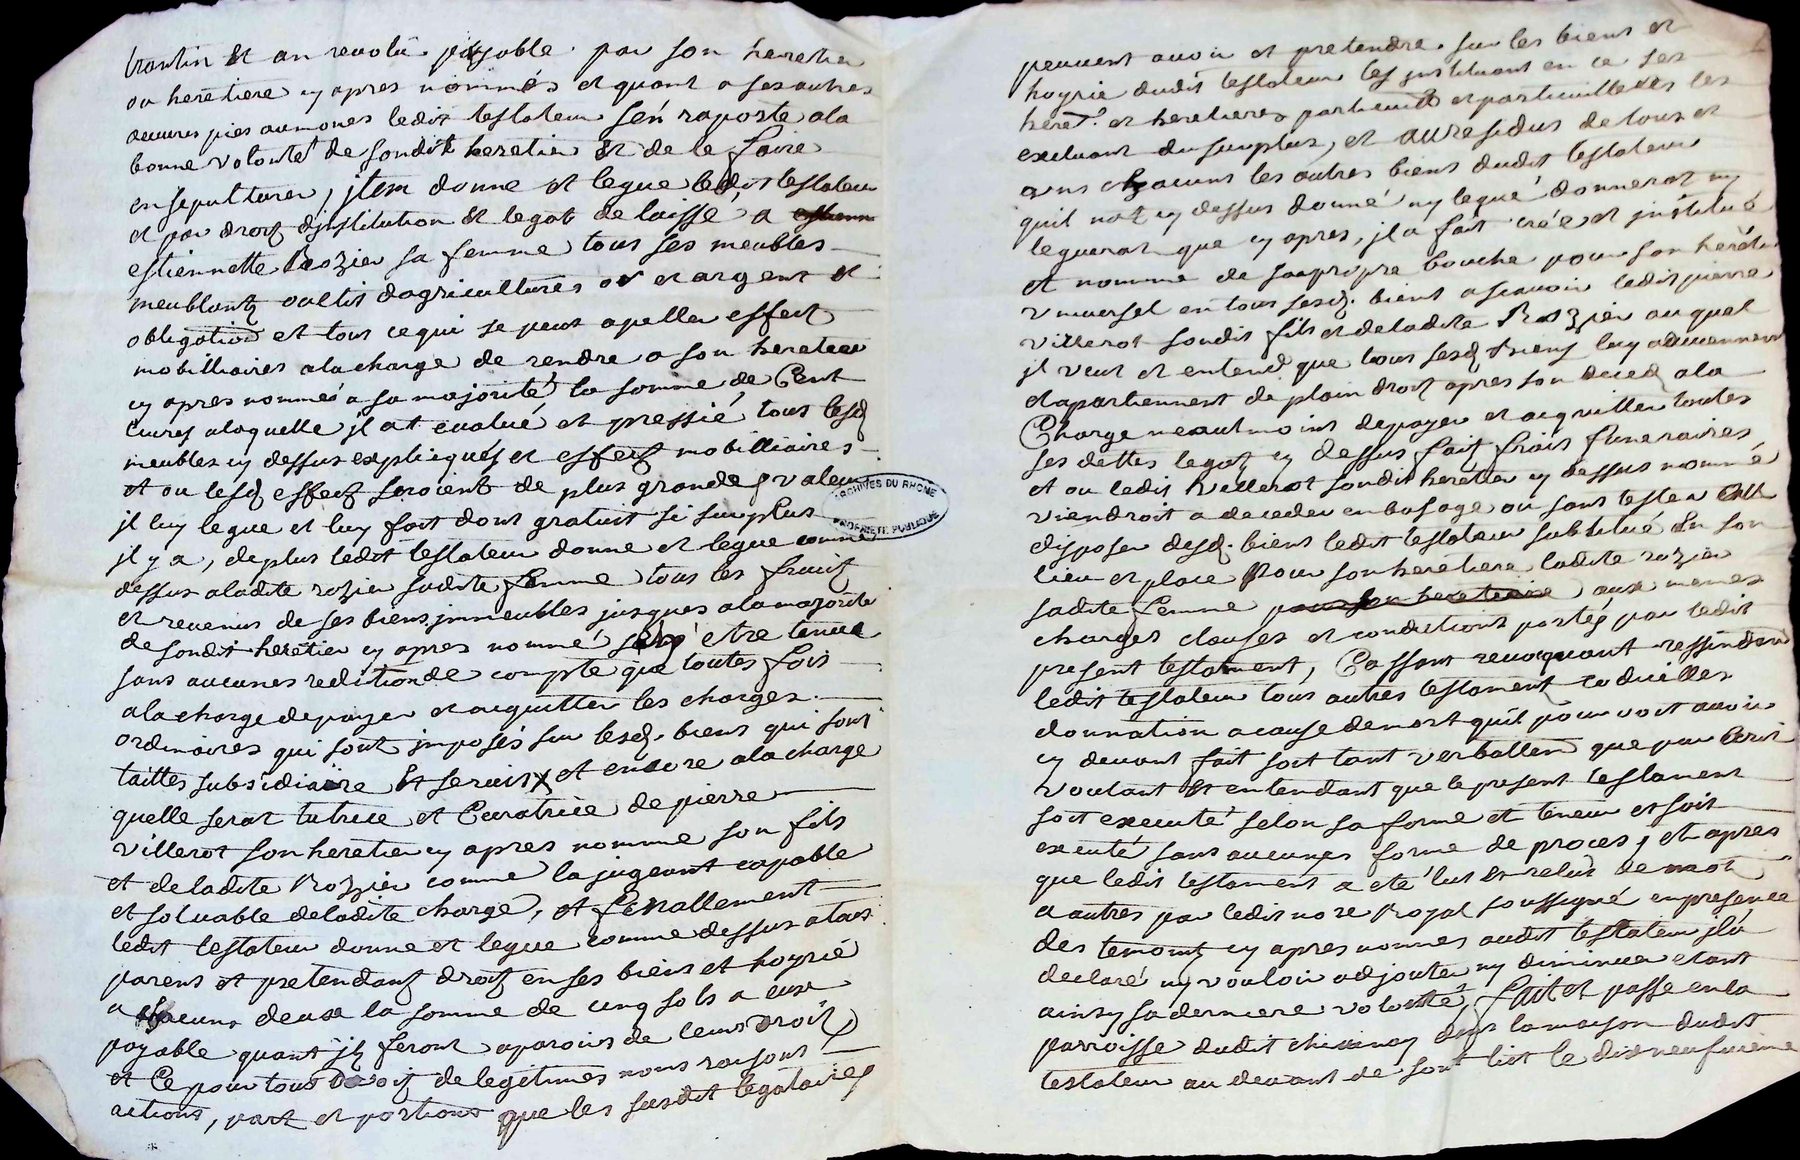 trantin et an revolu payable par son heretier
ou heretiere cy apres nommés et quant a ses autres
œuvres pies aumones ledit testateur s'en raporte a la
bonne volonté de sondit heretier et de le faire
ensepulturer, jtem donne et legue ledit testateur
et par droit djnstitution et legat de laisse, a
estiennette Rozier sa femme tous ses meubles
meublantz outtis dagricultures or et argent et
obligation et tous ce qui se peut apeller effect
mobilliaires a la charge de rendre a son heretier
cy apres nommé a sa majorité la somme de Cent
livres a laquelle jl at evalué et pressié tous lesd
meubles cy dessus expliqués et effect mobilliaires
et ou lesd effectz seroient de plus grande valeur
jl luy legue et luy fait dont gratuit si surplus
jl y a, de plus ledit testateur donne et legue comme
dessus a ladite rozier sadite femme tous les fruitz
et revenus de ses biens jmmeubles jusques a la majorité
de sondit heretier cy apres nommé etre tenue
sans aucunes redition de compte que toutes fois
a la charge de payer et acquitter les charges
ordinaires qui sont jmposés sur lesd. biens qui sont
tailles subsidiaire et servis et encore a la charge
quelle serat tutrice et Curatrice de pierre
villerot son heretier cy apres nomme son fils
et de ladite Rozier comme la jugeant capable
et solvable de ladite charge, et finallement
ledit testateur donne et legue comme dessus a tous
parens et pretendantz droitz en ses biens et hoyrié
a chacuns deux la somme de cinq sols a eux
payable quant jlz feront aparoir de leurs droitz
et Ce pour tous droitz de legitimes noms raisons
actions, part et portions que les susdit legataires
peuvent avoir et pretendre sur les biens et
hoyrie dudit testateur les jnstituant en ce ses
heret. et heretieres particuliers et particuillieres les
excluant du surplus, et au residus de tous et
uns chacuns les autres biens dudit testateur
quil nat cy dessus donné ny legué donnerat ny
leguerat que cy apres, jl a fait créé et jnstitué
et nomme de sa propre bouche pour son heretier
vniversel en tous sesd. biens a scavoir ledit pierre
villerot sondit fils et de ladite Rozier auquel
jl veut et entend que tous sesd biens luy adviennent
et apartiennent de plain droit apres son deced a la
Charge neautmoins de payer et acquitter toutes
ses dettes legatz cy dessus fait frais funeraires
et ou ledit villerot sondit heretier cy dessus nommé
viendroit a deceder en bas age ou sans tester
disposer desd. biens ledit testateur substitué en son
lieu et place pour son heretiere ladite rozier
sadite femme pour son heretiere aux memes
charges clauses et conditions portés par ledit
present testament, Cassant revocquant ressindant
ledit testateur tous autres testament codicilles
donnation a cause de mort quil pourroit avoir
cy devant fait soit tant verballem que par Ecrit
voulant et entendant que le present testament
soit executé selon sa forme et teneur et soit
executé sans aucunes forme de proces, et apres
que ledit testament a eté lut et relut de mot
a autres par ledit nore Royal soussigné en presence
des temointz cy apres nommes audit testateur jl a
declaré ny vouloir adjouter ny diminuer etant
ainsy sa derniere volonté, fait et passe en la
parroisse dudit chevinay dans la maison dudit
testateur au devant de sont lict le dixneufvieme
ARCHIVES DU RHONE
PROPRIETE PUBLIQUE